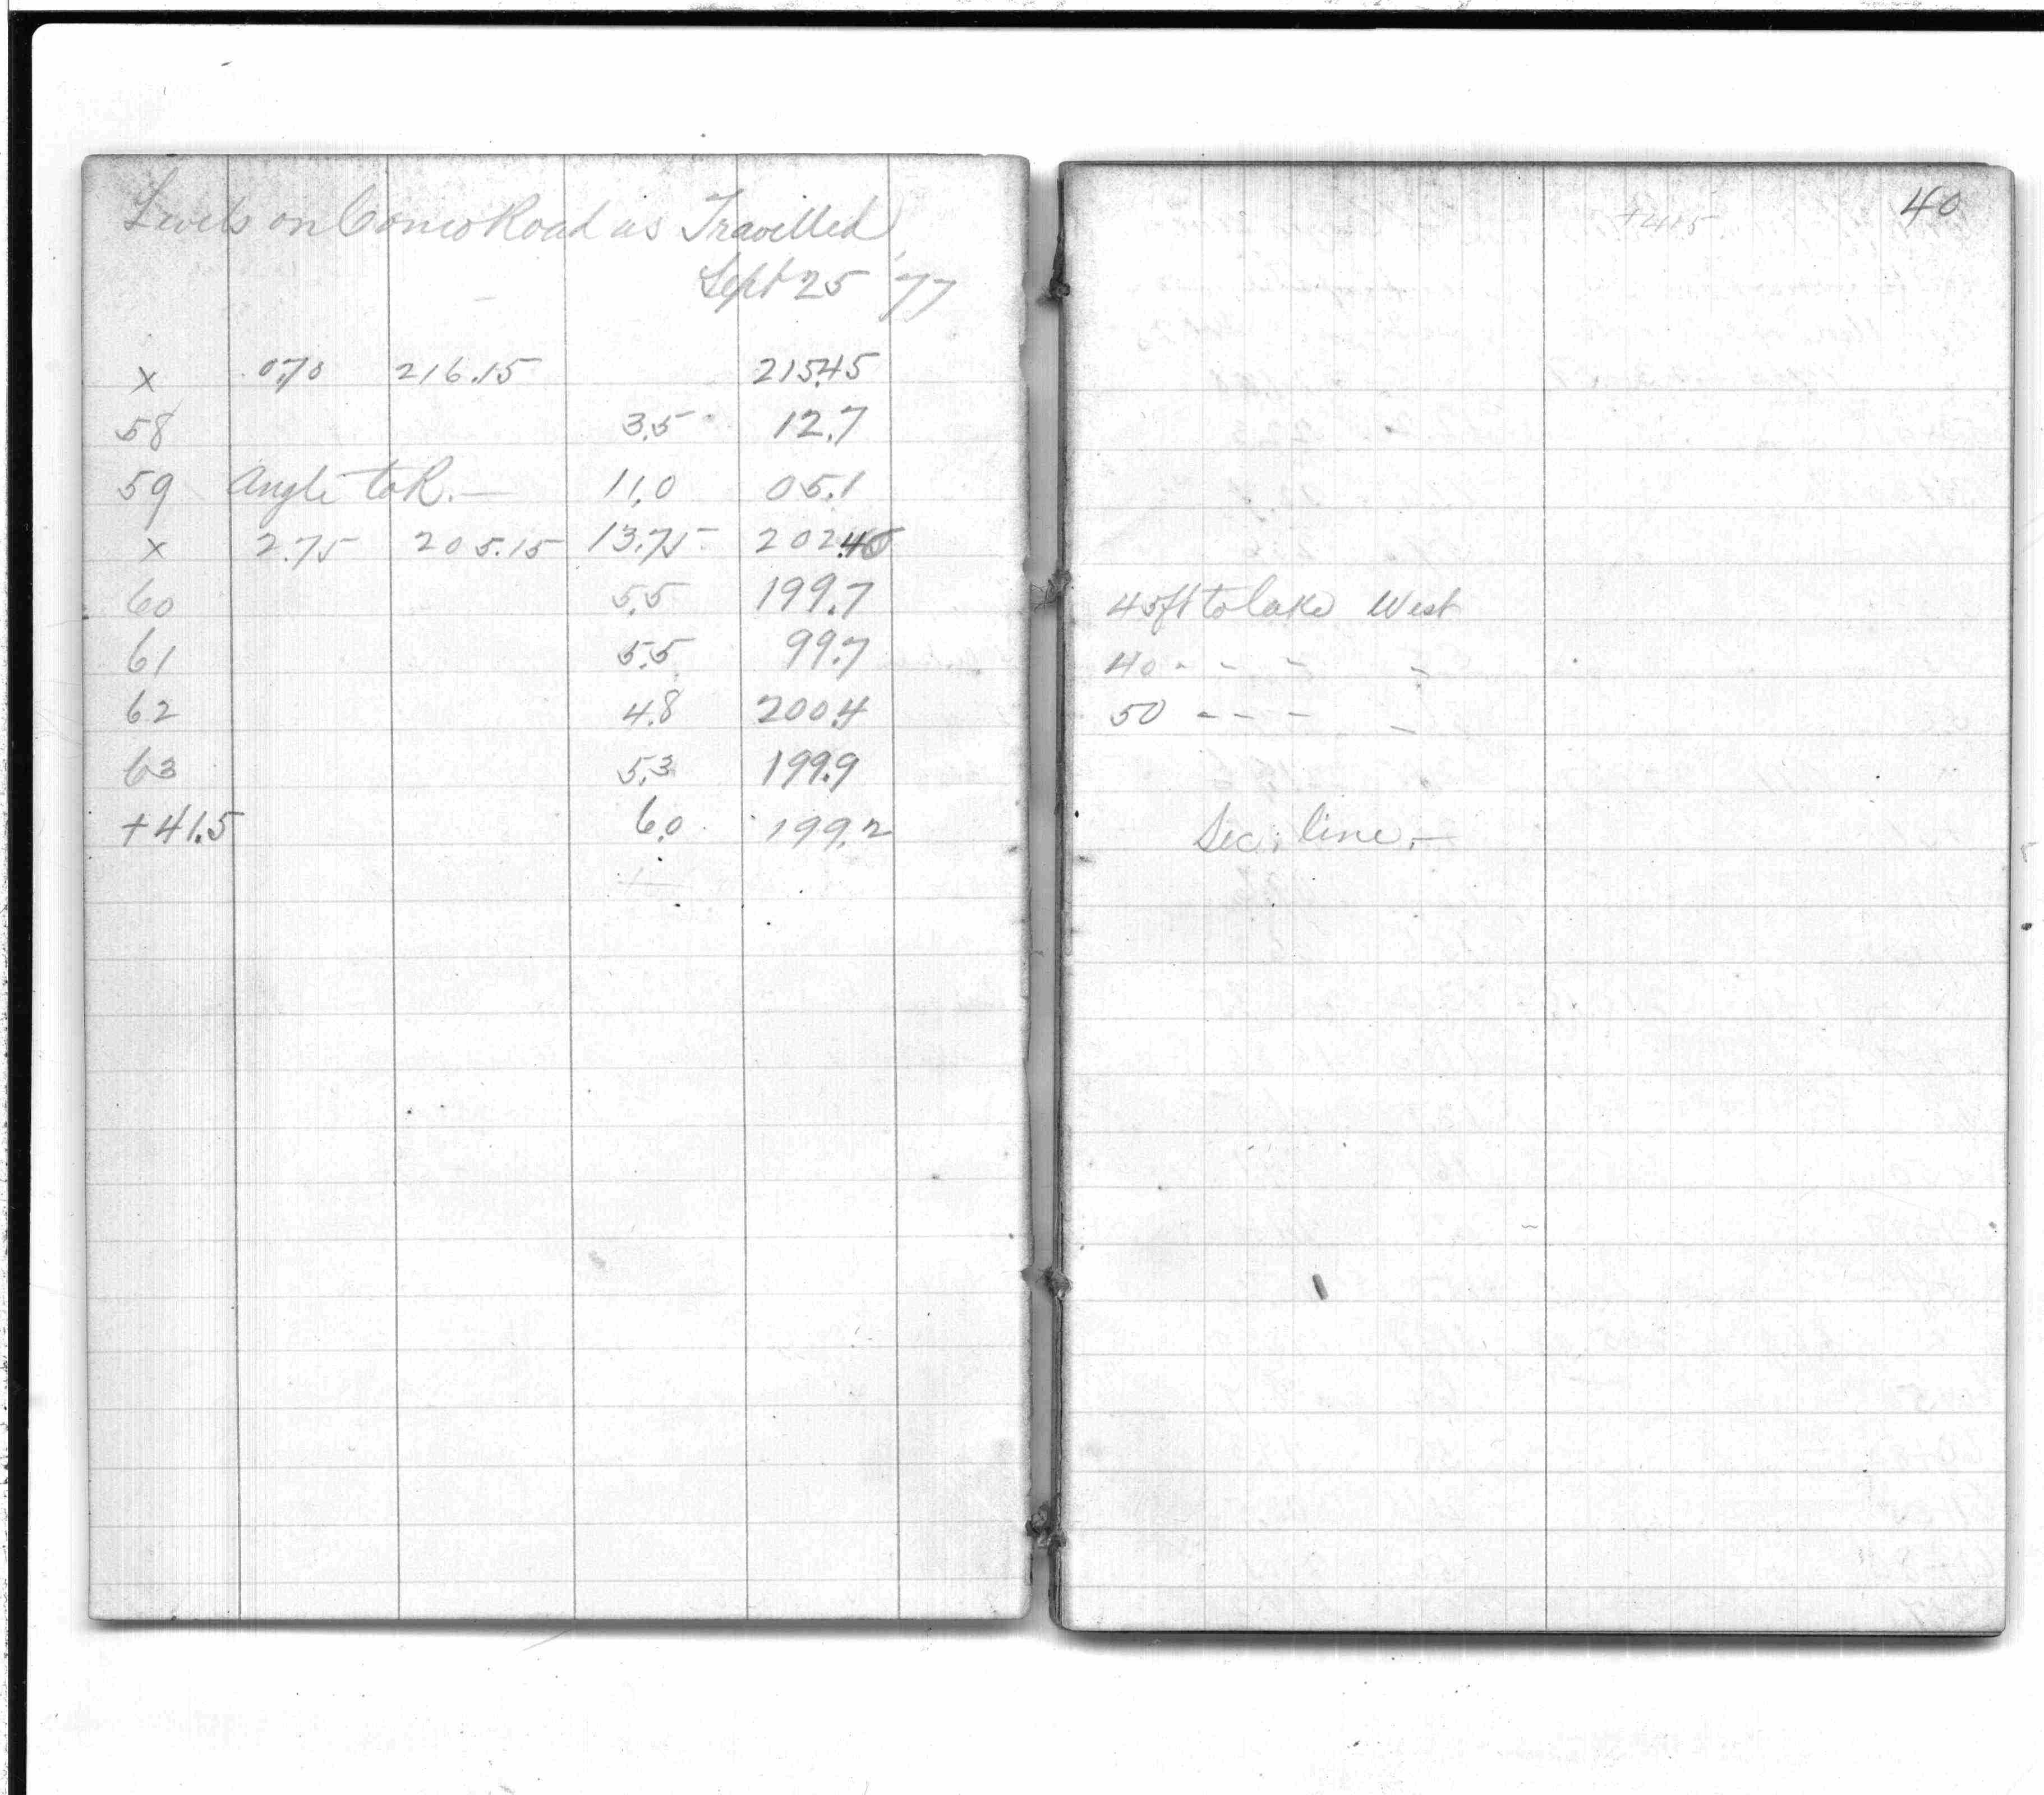 Levels on Como Road as Travelled
Sept 25 '77
x 0.70 216.15 215.45
58 3.5 12.7
59 Angle to R. — 11.0 05.1
x 2.75 205.15 13.75 202.40
60 5.5 199.7
61 5.5 99.7
62 4.8 200.4
63 5.3 199.9
+41.5 6.0 199.2
40
+41.5
45 ft to lake West
40 - - - -
50 - - - -
Sec. line. —